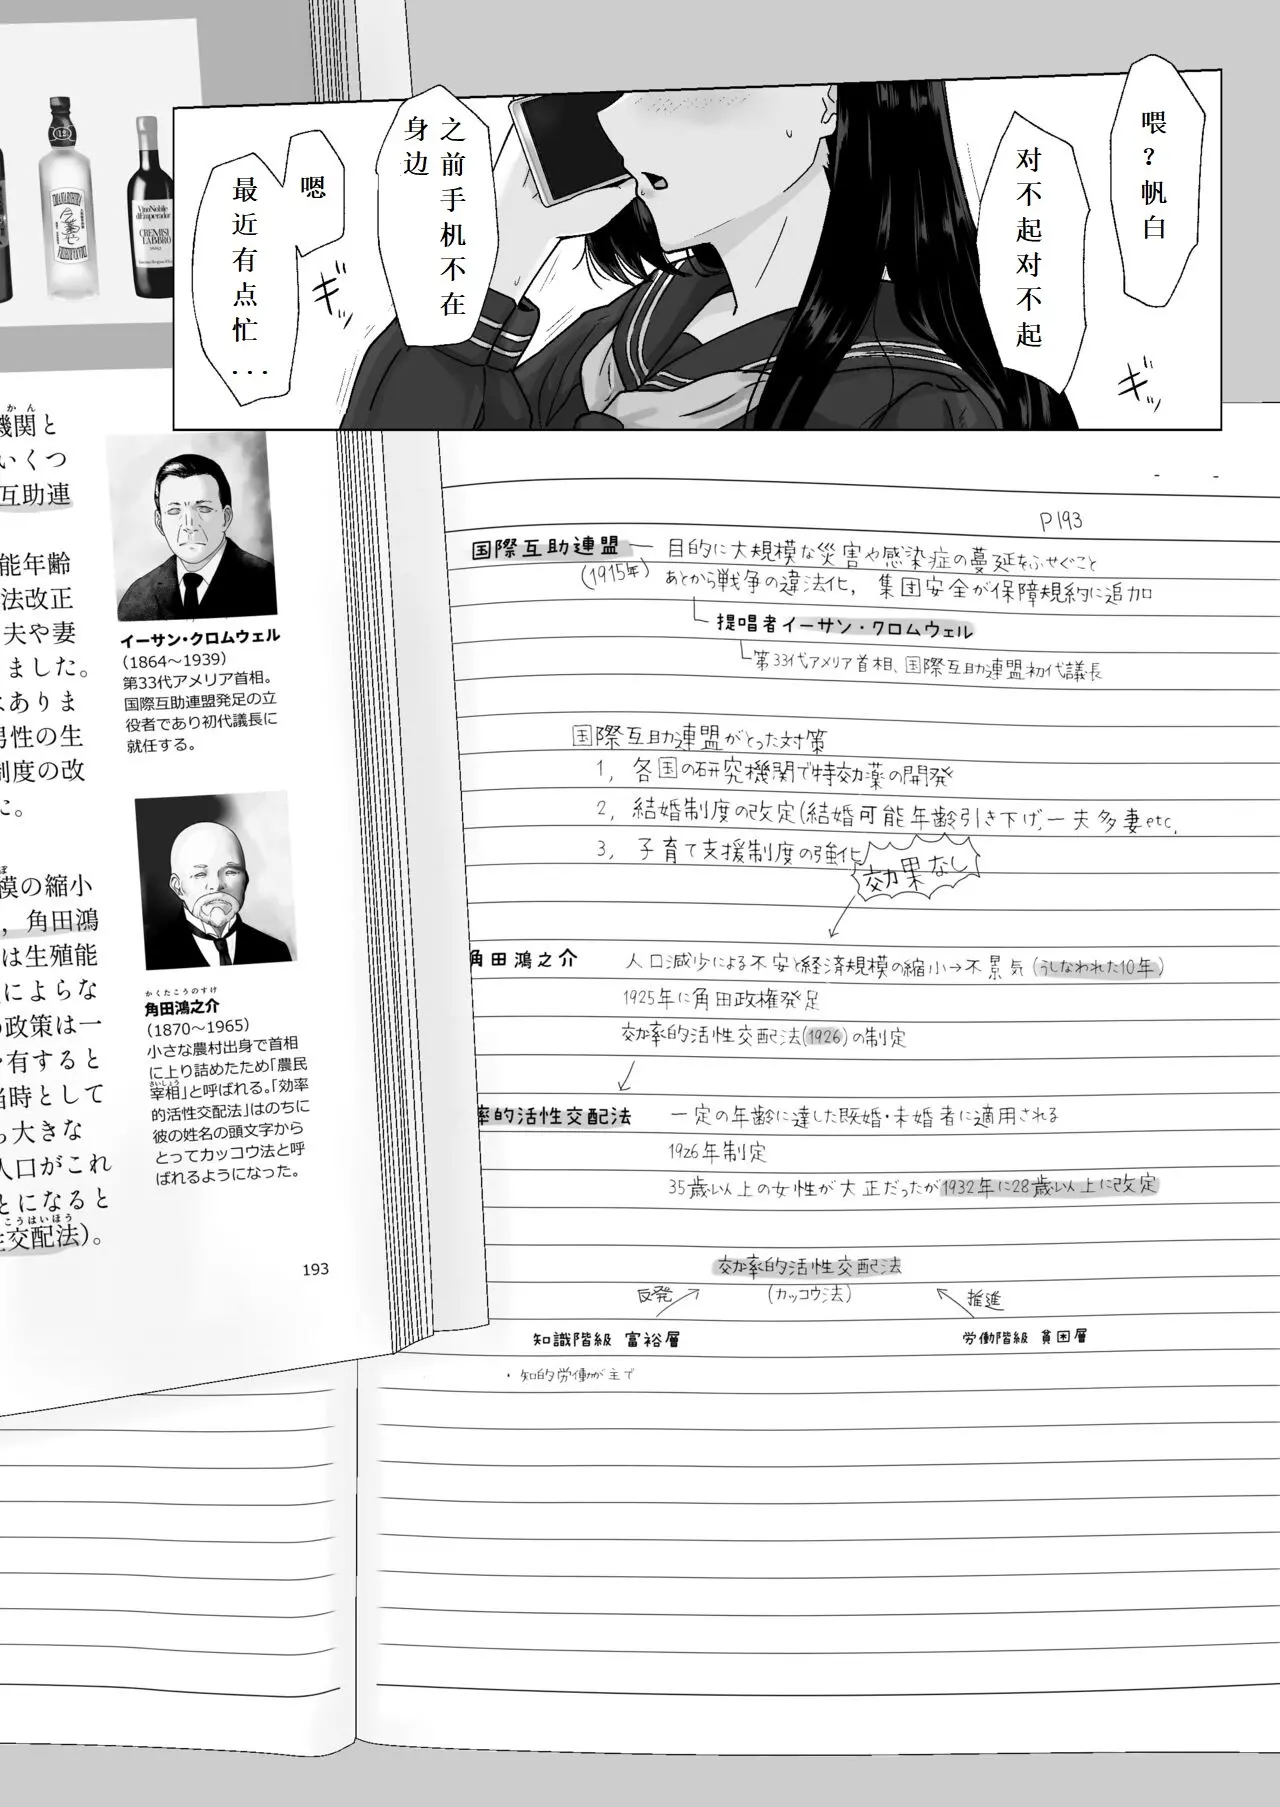 喂？帆白
对不起对不起
之前手机不在
身边
嗯
最近有点忙...
ギシ
ギシ
VinoNobile
dImperador
CREMISI
LABMBRO
かん
機関と
いくつ
互助連
能年齢
法改正
夫や妻
りました。
はありま
男性の生
制度の改
た。
模の縮小
，角田鴻
は生殖能
によらな
の政策は一
を有すると
当時として
ら大きな
人口がこれ
とになると
こうはいほう
性交配法）。
イーサン・クロムウェル
（1864〜1939）
第33代アメリア首相。
国際互助連盟発足の立
役者であり初代議長に
就任する。
かくたこうのすけ
角田鴻之介
（1870〜1965）
小さな農村出身で首相
に上り詰めたため「農民
さいしょう
宰相」と呼ばれる。「効率
的活性交配法」はのちに
彼の姓名の頭文字から
とってカッコウ法と呼
ばれるようになった。
193
P193
国際互助連盟 — 目的に大規模な災害や感染症の蔓延をふせぐこと
(1915年) あとから戦争の違法化，集団安全が保障規約に追加
提唱者イーサン・クロムウェル
第33代アメリア首相、国際互助連盟初代議長
国際互助連盟がとった対策
1，各国の研究機関で特効薬の開発
2，結婚制度の改定(結婚可能年齢引き下げ，一夫多妻etc，
3，子育て支援制度の強化
効果なし
角田鴻之介 人口減少による不安と経済規模の縮小→不景気（うしなわれた10年）
1925年に角田政権発足
効率的活性交配法(1926)の制定
率的活性交配法 一定の年齢に達した既婚・未婚者に適用される
1926年制定
35歳以上の女性が大正だったが1932年に28歳以上に改定
効率的活性交配法
反発 (カッコウ法) 推進
知識階級 富裕層 労働階級 貧困層
・知的労働が主で